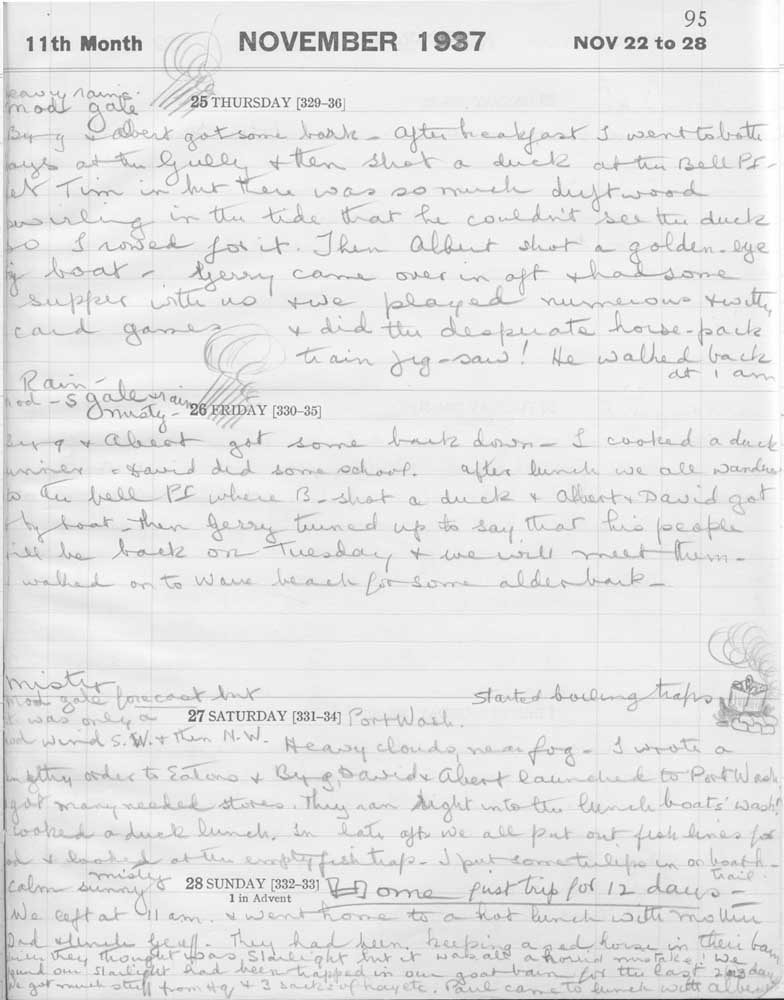 95
11th Month NOVEMBER 1937 NOV 22 to 28
heavy rains
mod gale
25 THURSDAY [329–36]
Byrg & Albert got some bark - After breakfast I went to both
at the Gully & then shot a duck at the Bell Pt -
Tim in but there was so much driftwood
swirling in the tide that he couldn't see the duck
so I rowed for it. Then Albert shot a golden-eye
by boat - Gerry came over in aft & had some
supper with us & we played numerous & witty
card games & did the desperate horse-pack
train jig-saw! He walked back
at 1 am
Rain -
mod - S gale & rain
misty -
26 FRIDAY [330–35]
Byrg & Albert got some bark down - I cooked a duck
dinner - David did some school. After lunch we all wandered
to the bell Pt where B - shot a duck & Albert & David got
by boat - then Gerry turned up to say that his people
will be back on Tuesday & we will meet them -
I walked on to Wave beach for some alder bark -
mod gale forecast but
it was only a
Started boiling traps
27 SATURDAY [331–34] Port Wash.
mod wind S.W. & then N.W.
Heavy clouds, near fog - I wrote a
lengthy order to Eatons & Byrg, David & Albert launched to Port Wash
got many needed stores. They ran right into the lunch boats' wash!
Cooked a duck lunch. In late aft we all put out fish lines for
cod & looked at the empty fish trap - I put some tulips in on boat h -
trail -
misty
calm sunny
28 SUNDAY [332–33] Home first trip for 12 days -
1 in Advent
We left at 11 am. & went home to a hot lunch with mother
Dad & Uncle Geoff. They had been keeping a red horse in their barn
they thought was Starlight but it was all a horrid mistake! We
found our Starlight had been trapped in our goat barn for the last 2 days
We got much stuff from Hq & 3 sacks of hay etc. Paul came to lunch with Albert